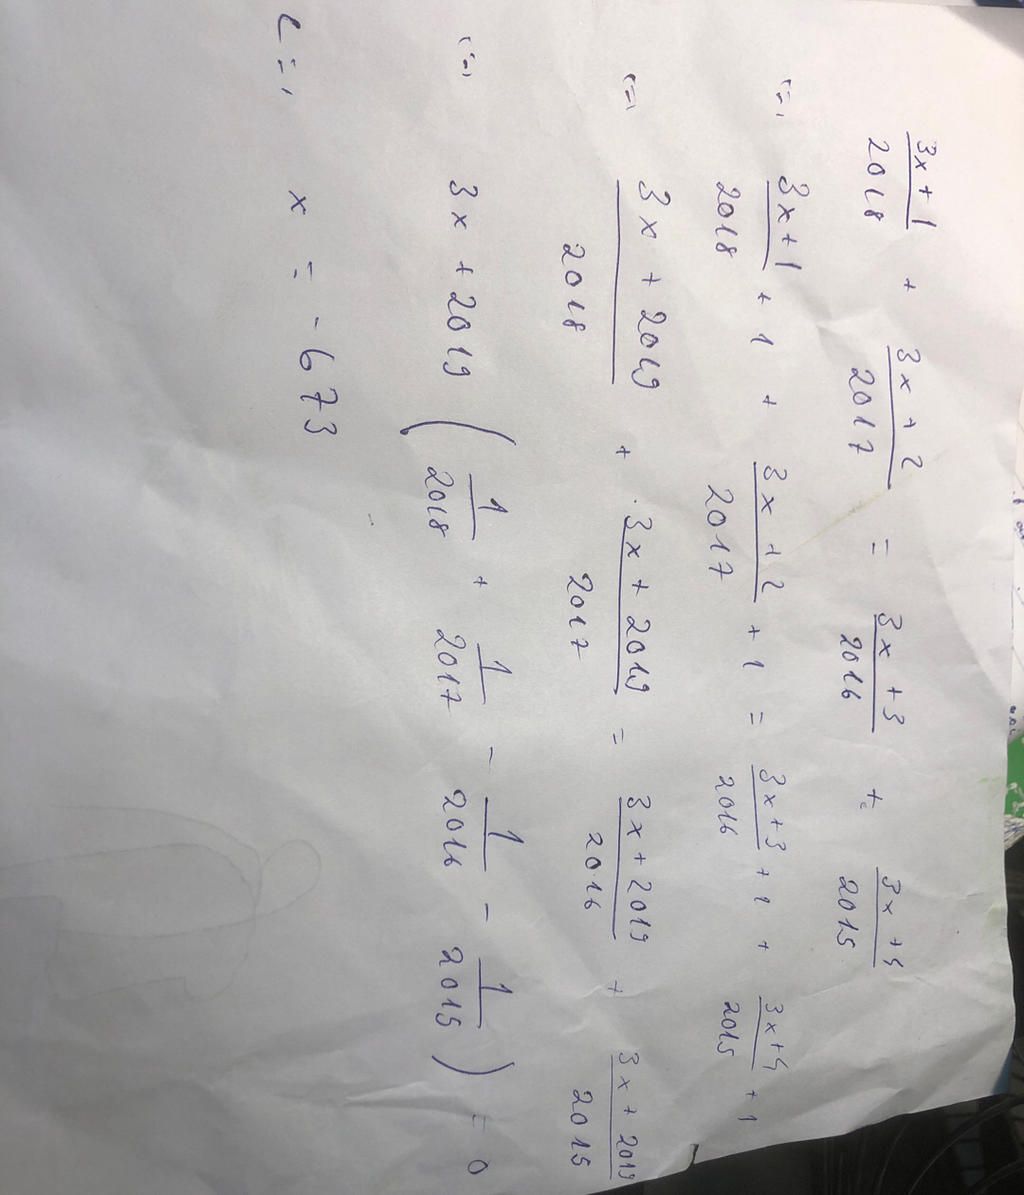 3x+1/2018 + 3x+2/2017 = 3x+3/2016 + 3x+4/2015
(=) 3x+1/2018 + 1 + 3x+2/2017 + 1 = 3x+3/2016 + 1 + 3x+4/2015 + 1
(=) 3x+2019/2018 + 3x+2019/2017 = 3x+2019/2016 + 3x+2019/2015
(=) 3x+2019 (1/2018 + 1/2017 - 1/2016 - 1/2015) = 0
(=) x = -673